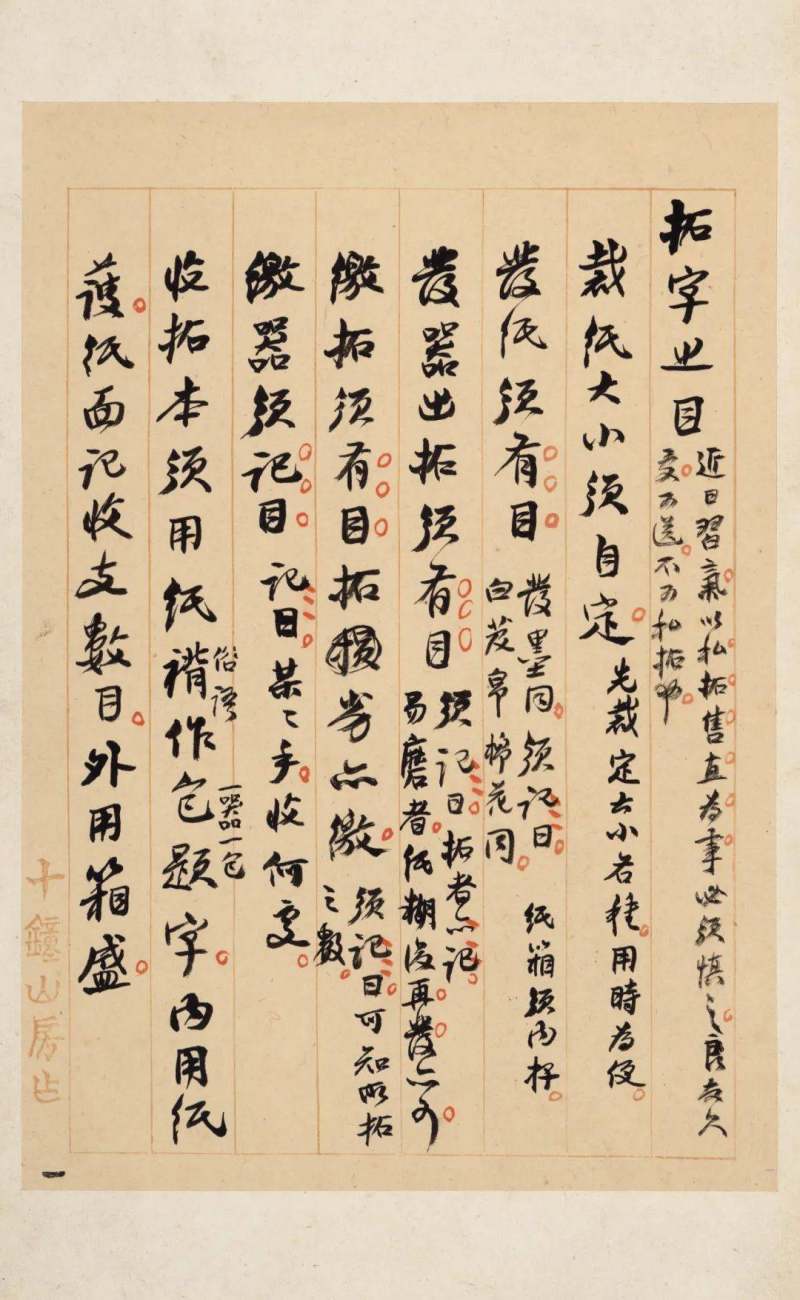 拓字之目
近日習氣以私拓售直為事必須慎之良友久
交可送不可私拓也
裁紙大小須自定
先裁定大小各種用時為便
發紙須有目
發墨同須記日
白芨帛棉花同
紙箱須內好
發器出拓須有目
須記日拓者亦記
易磨者紙糊後再發亦可
繳拓須有目拓損劣亦繳
須記日可知所拓
之數
繳器須記目記日某々手收何處
收拓本須用紙褙作包題字內用紙
俗語
一器一包
護紙面記收支數目外用箱盛
十鐘山房
一